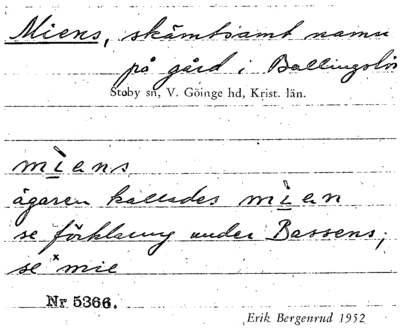 Miens, skämtsamt namn
på gård i Ballingslöv
Stoby sn, V. Göinge hd, Krist. län.
miens
ägaren kallades mien
se förklaring under Bassens;
se *mie
Nr 5366.
Erik Bergenrud 1952